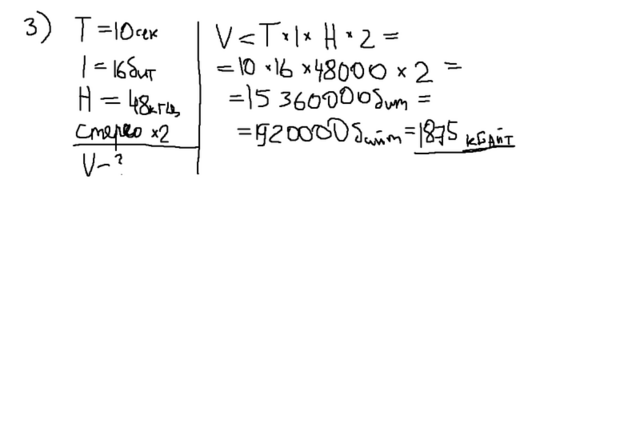 3) T = 10 сек
I = 16 бит
H = 48 кгц
стерео ×2
V - ?
V = T × I × H × 2 =
= 10 × 16 × 48000 × 2 =
= 15 360000 бит =
= 1920000 байт = 1875 кбайт